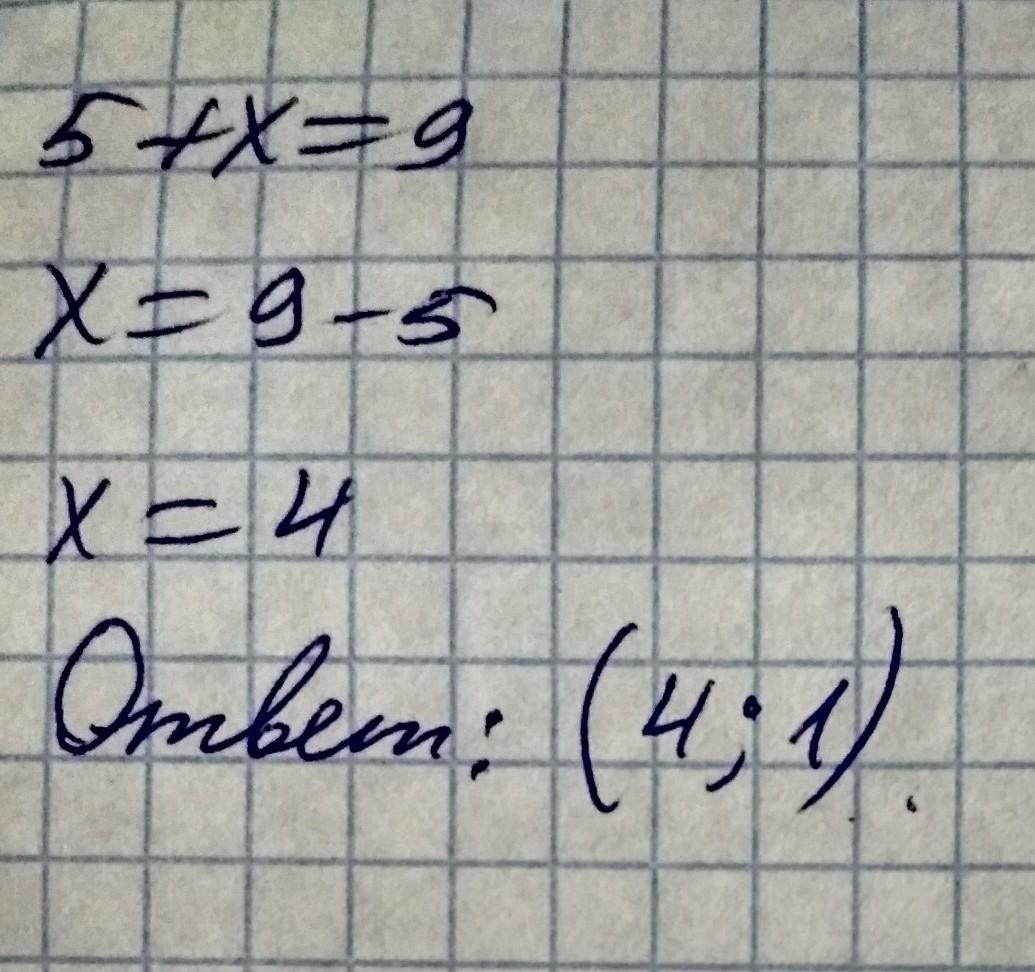 5+x=9
x=9-5
x=4
Ответ: (4;1).